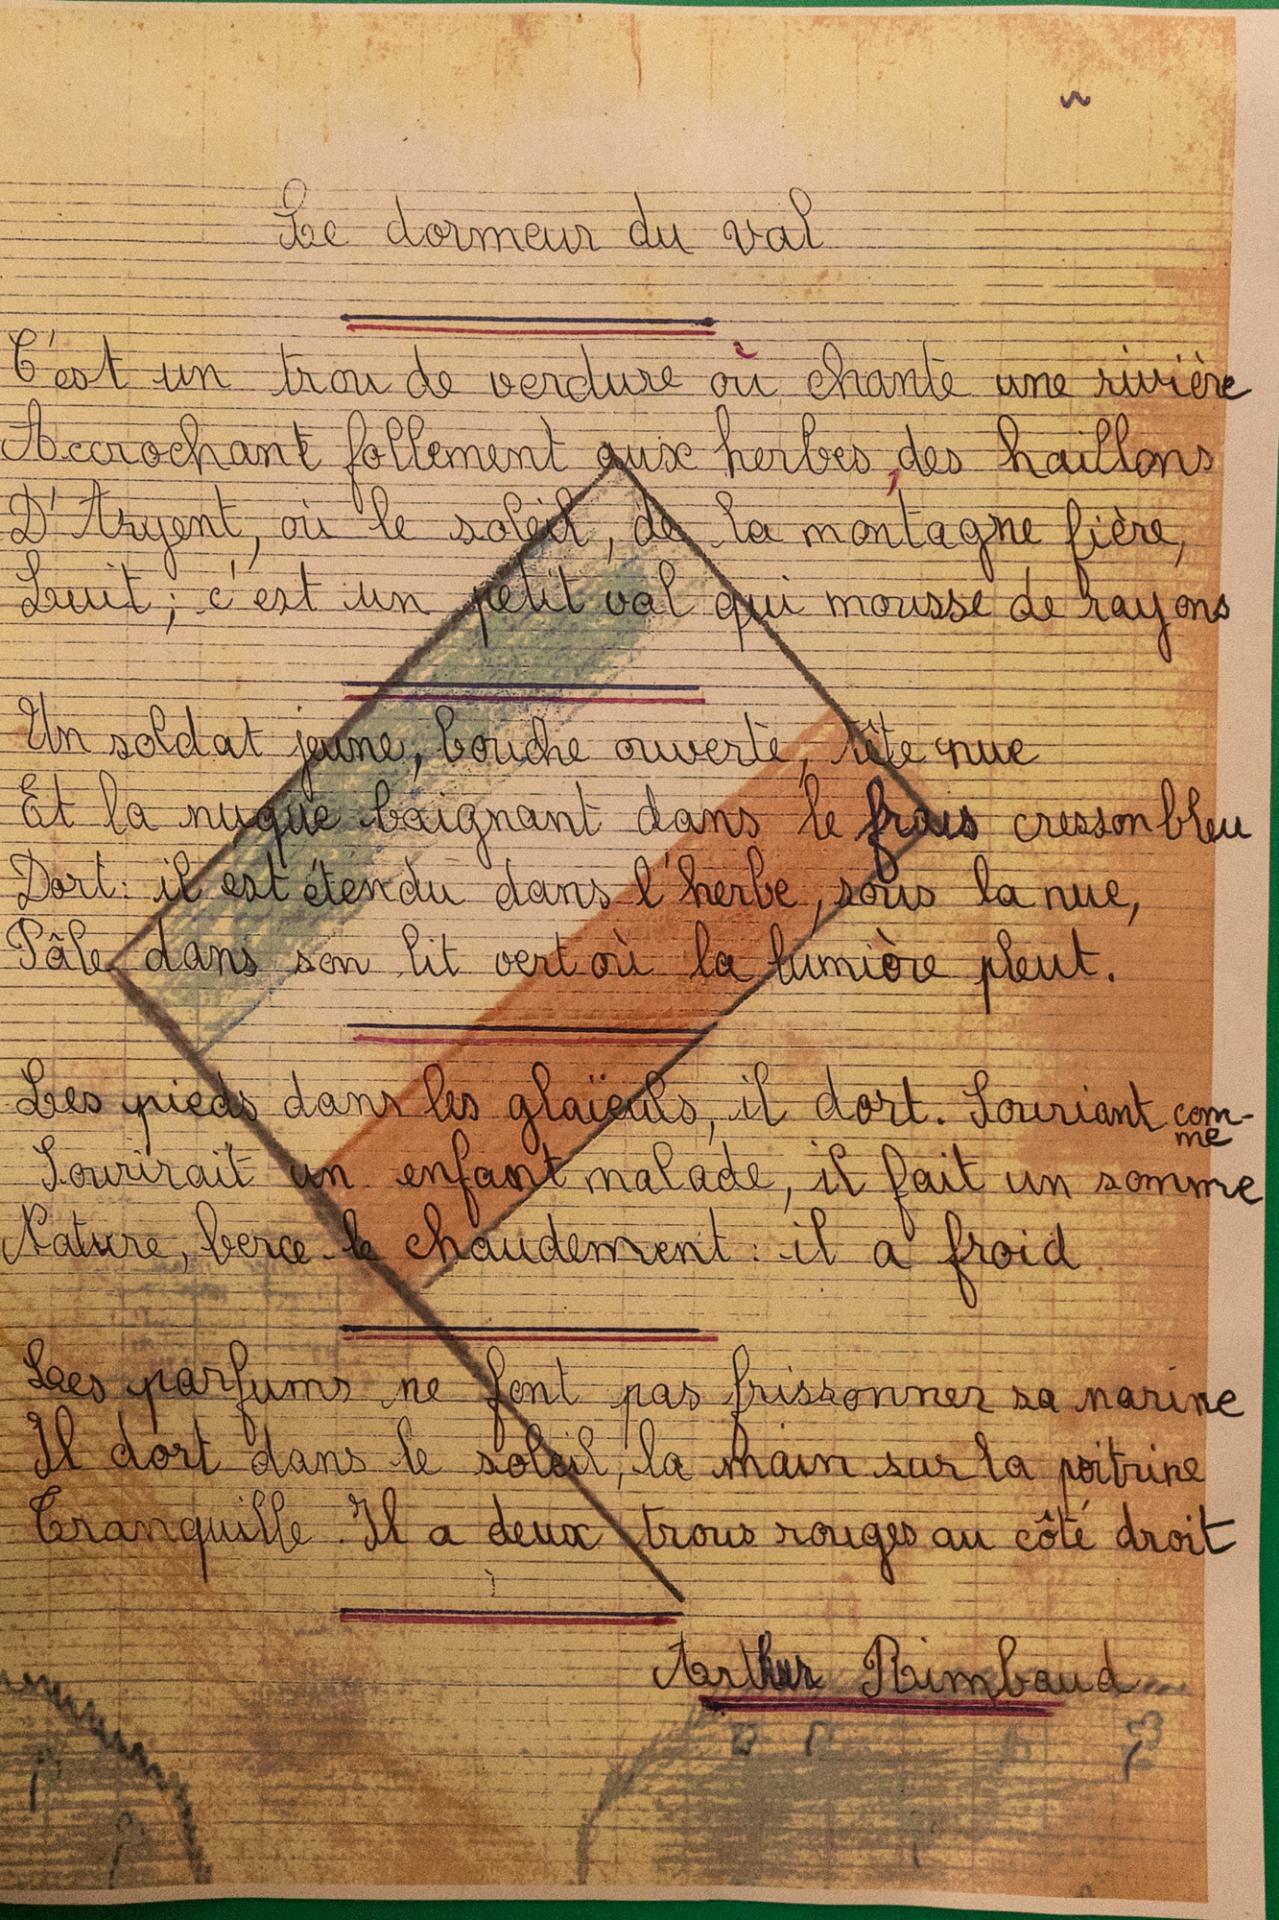 Le dormeur du val
C'est un trou de verdure où chante une rivière
Accrochant follement aux herbes, des haillons
D'Argent, où le soleil, de la montagne fière,
Luit ; c'est un petit val qui mousse de rayons
Un soldat jeune, bouche ouverte, tête nue
Et la nuque baignant dans le frais cresson bleu
Dort : il est étendu dans l'herbe, sous la nue,
Pâle dans son lit vert où la lumière pleut.
Les pieds dans les glaïeuls, il dort. Souriant com-
me
Sourirait un enfant malade, il fait un somme
Nature, berce-le chaudement : il a froid
Les parfums ne font pas frissonner sa narine
Il dort dans le soleil, la main sur la poitrine
Tranquille. Il a deux trous rouges au côté droit
Arthur Rimbaud